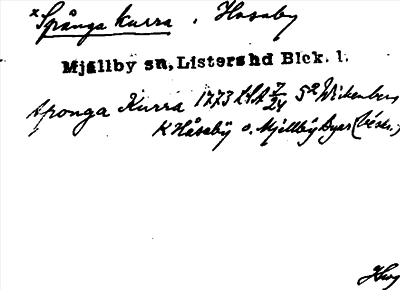 x Spånga kurra, Hosaby
Mjällby sn, Listers hd Blek. l.
Sponga Kurra 1773 LSA 7/24 52 Wickenberg
K Håsabÿ o. Mjellbÿ Byar (beskr.)